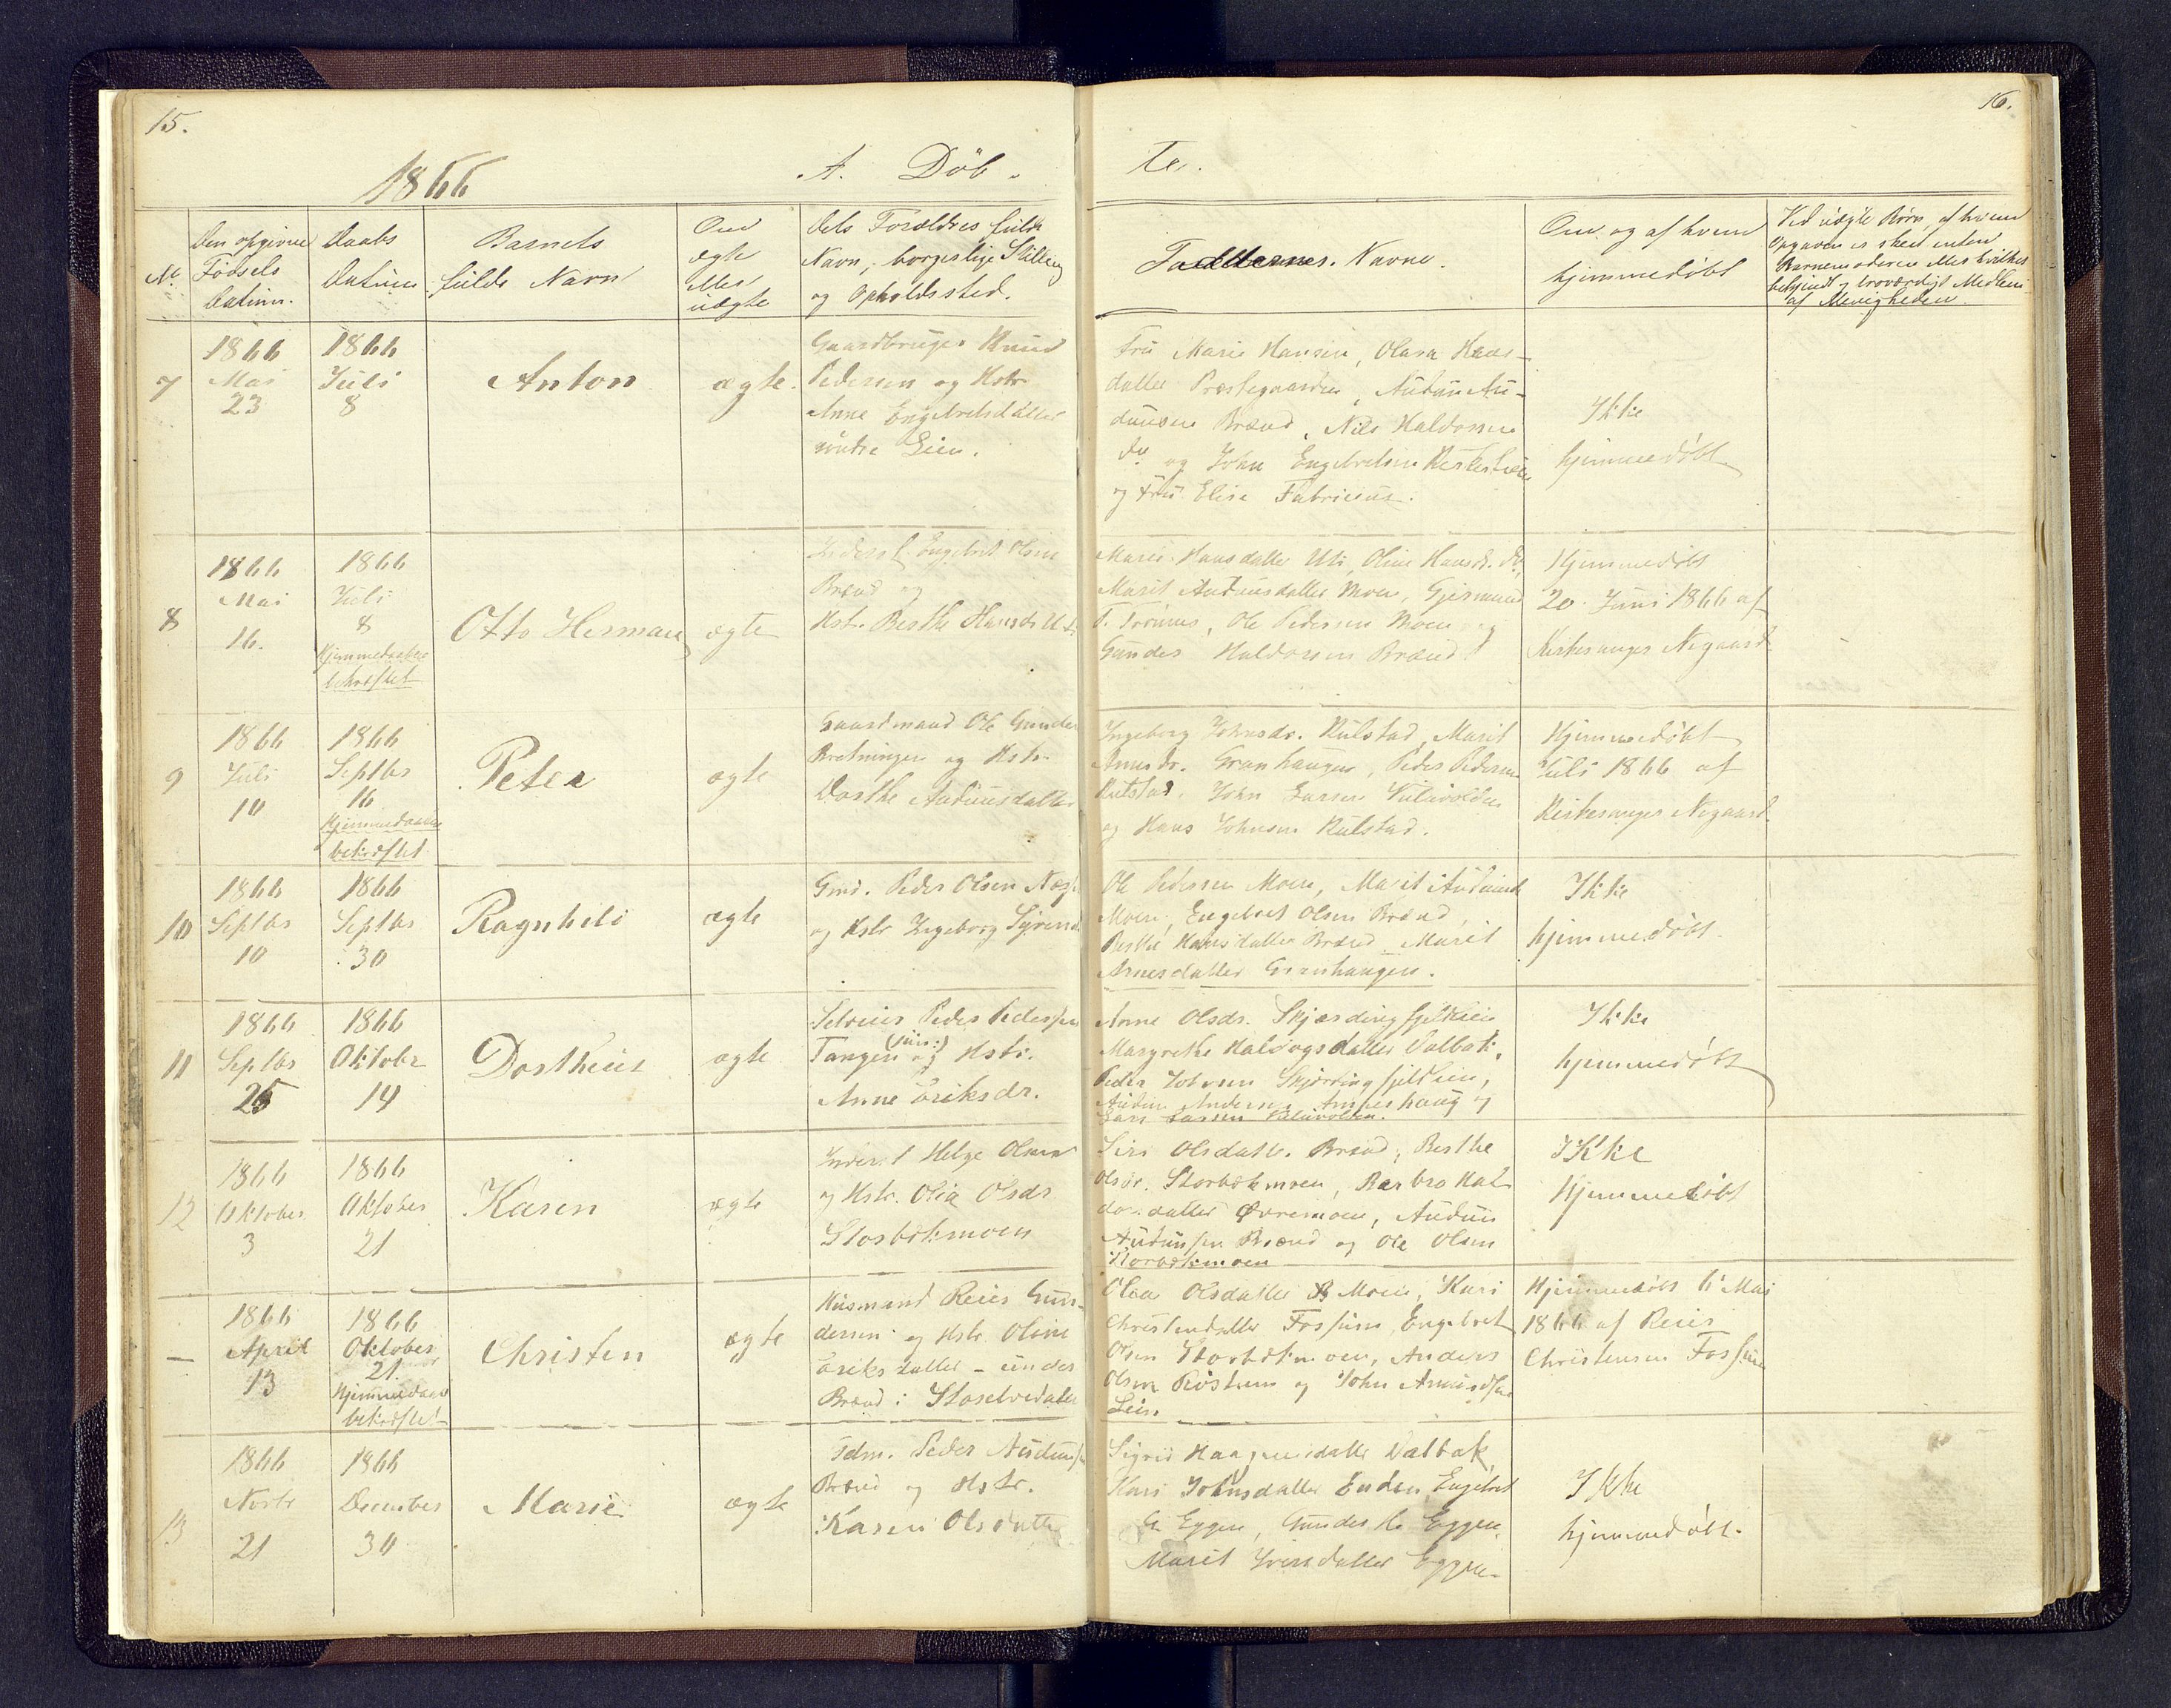 15.
1866
A. Döb-
No
Den opgivne
Födsels
Datum.
Daabs
Datum
Barnets
fulde Navn
Om
ægte
eller
uægte
Dets Forældres fulde
Navn, borgerlige Stilling
og Opholdssted.
7
1866
Mai
23
1866
Juli
8
Anton
ægte.
Gaardbruger Knud
Pedersen og Hstr
Anne Engebretsdatter
söndre Lien.
8
1866
Mai
16.
1866
Juli
8
Hjemmedaaben
bekræftet
Otto Herman
ægte
Inderst Engebret Olsen
Brænd og
Hstr. Berthe Hansdr Uti
9
1866
Juli
10
1866
Septbr
16
Hjemmedaaben
bekræftet
Peter
ægte
Gaardmand Ole Gunder
Bretningen og Hstr
Dorthe Audunsdatter
10
1866
Septbr
10
1866
Septbr
30
Ragnhild
ægte
Gmd. Peder Olsen
og Hstr Ingeborg
11
1866
Septbr
25
1866
Oktobr
14
Dortheus
ægte
Selveier Peder Pederssen
Tangen (jun:) og Hstr.
Anne Eriksdr.
12
1866
Oktober
3
1866
Oktober
21
Karen
ægte
Inderst Helge Olsen
og Hstr. Olia Olsdr
Storbækmoen
-
1866
April
13
1866
Oktober
21.
Hjemmedaab
bekræftet
Christen
ægte
Husmand Reier Gun-
dersen og Hstr Oline
Eriksdatter - under
Brænd i Storelvedalen
13
1866
Novbr
21
1866
December
30
Marie
ægte
Peder Audunss
Brænd og Hstr.
Karen Olsdatter
16.
te.
Faddernes Navne.
Om og af hvem
hjemmedöbt
Ved uægte Börn, af hvem
Opgaven er skeet enten
Barnemoderen eller hvilket
bekjendt og troværdigt Medlem
af Menigheden
Fru Marie Hansen, Olava Haas-
datter Præstegaarden, Audun Au-
dunsen Brænd, Nils Haldorsen
do og John Engebretsen
og Fru Elise Fabricius.
Ikke
hjemmedöbt
Marie Hansdatter Uti, Oline Hansd. do,
Marit Audunsdatter Moen, Gjermund
T. Trönnes, Ole Pedersen Moen og
Gunder Haldorsen Brænd.
Hjemmedöbt
20. Juni 1866 af
Kirkesanger Nygaard
Ingeborg Johnsdr. Rulstad, Marit
Arnesdr. Granhaugen, Peder Pedersen
Rulstad, John Larsen
og Hans Johnsen Rulstad.
Hjemmedöbt
Juli 1866 af
Kirkesanger Nygaard.
Ole Pedersen Moen, Marit Audunsd
Moen, Engebret Olsen Brænd,
Berthe Hansdatter Brænd, Marit
Arnesdatter Granhaugen.
Ikke
hjemmedöbt.
Anne Olsdr. Skjærdingfjeldlien
Margrethe Haldorsdatter Valbæk,
Peder Johnsen Skjærdingfjeldlien,
Audun Andersen
Lars Larsen
Ikke
hjemmedöbt
Siri Olsdatter Brænd, Berthe
Olsdr. Storbækmoen, Barbro Hal-
dorsdatter Övremoen, Audun
Audunssen Brænd og Ole Olsen
Storbækmoen
Ikke
hjemmedöbt
Olea Olsdatter Moen, Kari
Christensdatter Fossum, Engebret
Olsen Storbækmoen, Anders
Olsen og John Amundsen
Lien.
Hjemmedöbt 6 Mai
1866 af Reier
Christensen Fossum
Sigrid Haagensdatter Valbak,
Kari Johnsdatter Enden, Engebret
E. Eggen, Gunder Eggen
Marit Iversdatter Eggen-
Ikke
hjemmedöbt.